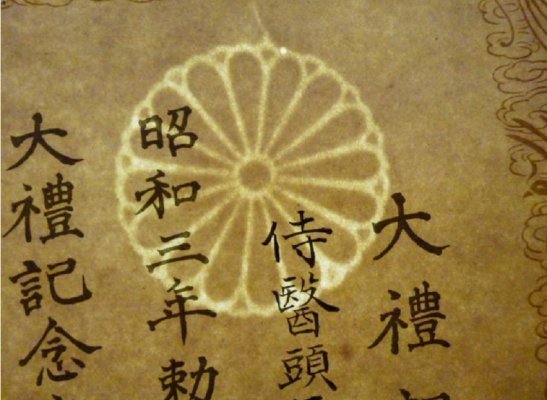 大禮
侍醫頭
昭和三年勅
大禮記念